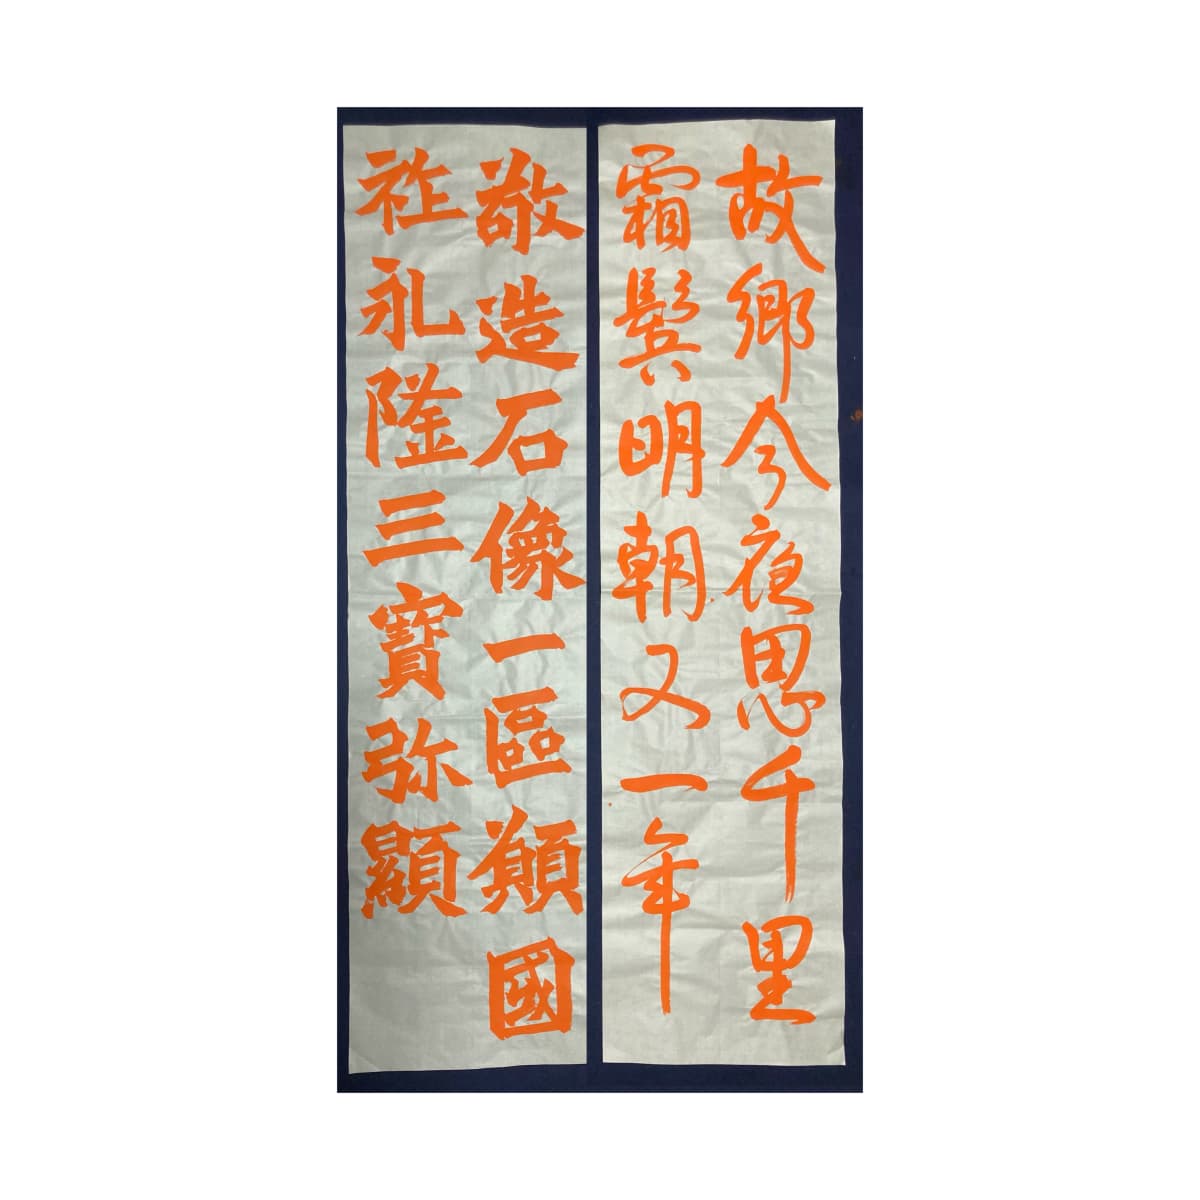 故鄉今夜思千里
霜鬢明朝又一年
敬造石像一區願國
祚永隆三寶弥顯